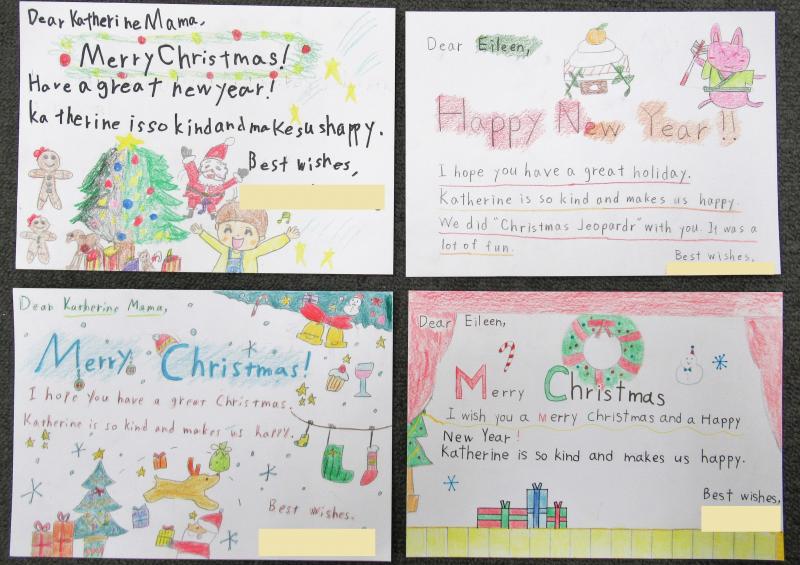 Dear Katherine Mama,
Merry Christmas!
Have a great new year!
katherine is so kind and makes us happy.
Best wishes,
Dear Eileen,
Happy New Year!!
I hope you have a great holiday.
Katherine is so kind and makes us happy.
We did "Christmas Jeopardr" with you. It was a
lot of fun.
Best wishes,
Dear Katherine Mama,
Merry Christmas!
I hope you have a great Christmas.
Katherine is so kind and makes us happy.
Best wishes.
Dear Eileen,
Merry Christmas
I wish you a Merry Christmas and a Happy
New Year!
Katherine is so kind and makes us happy.
Best wishes,